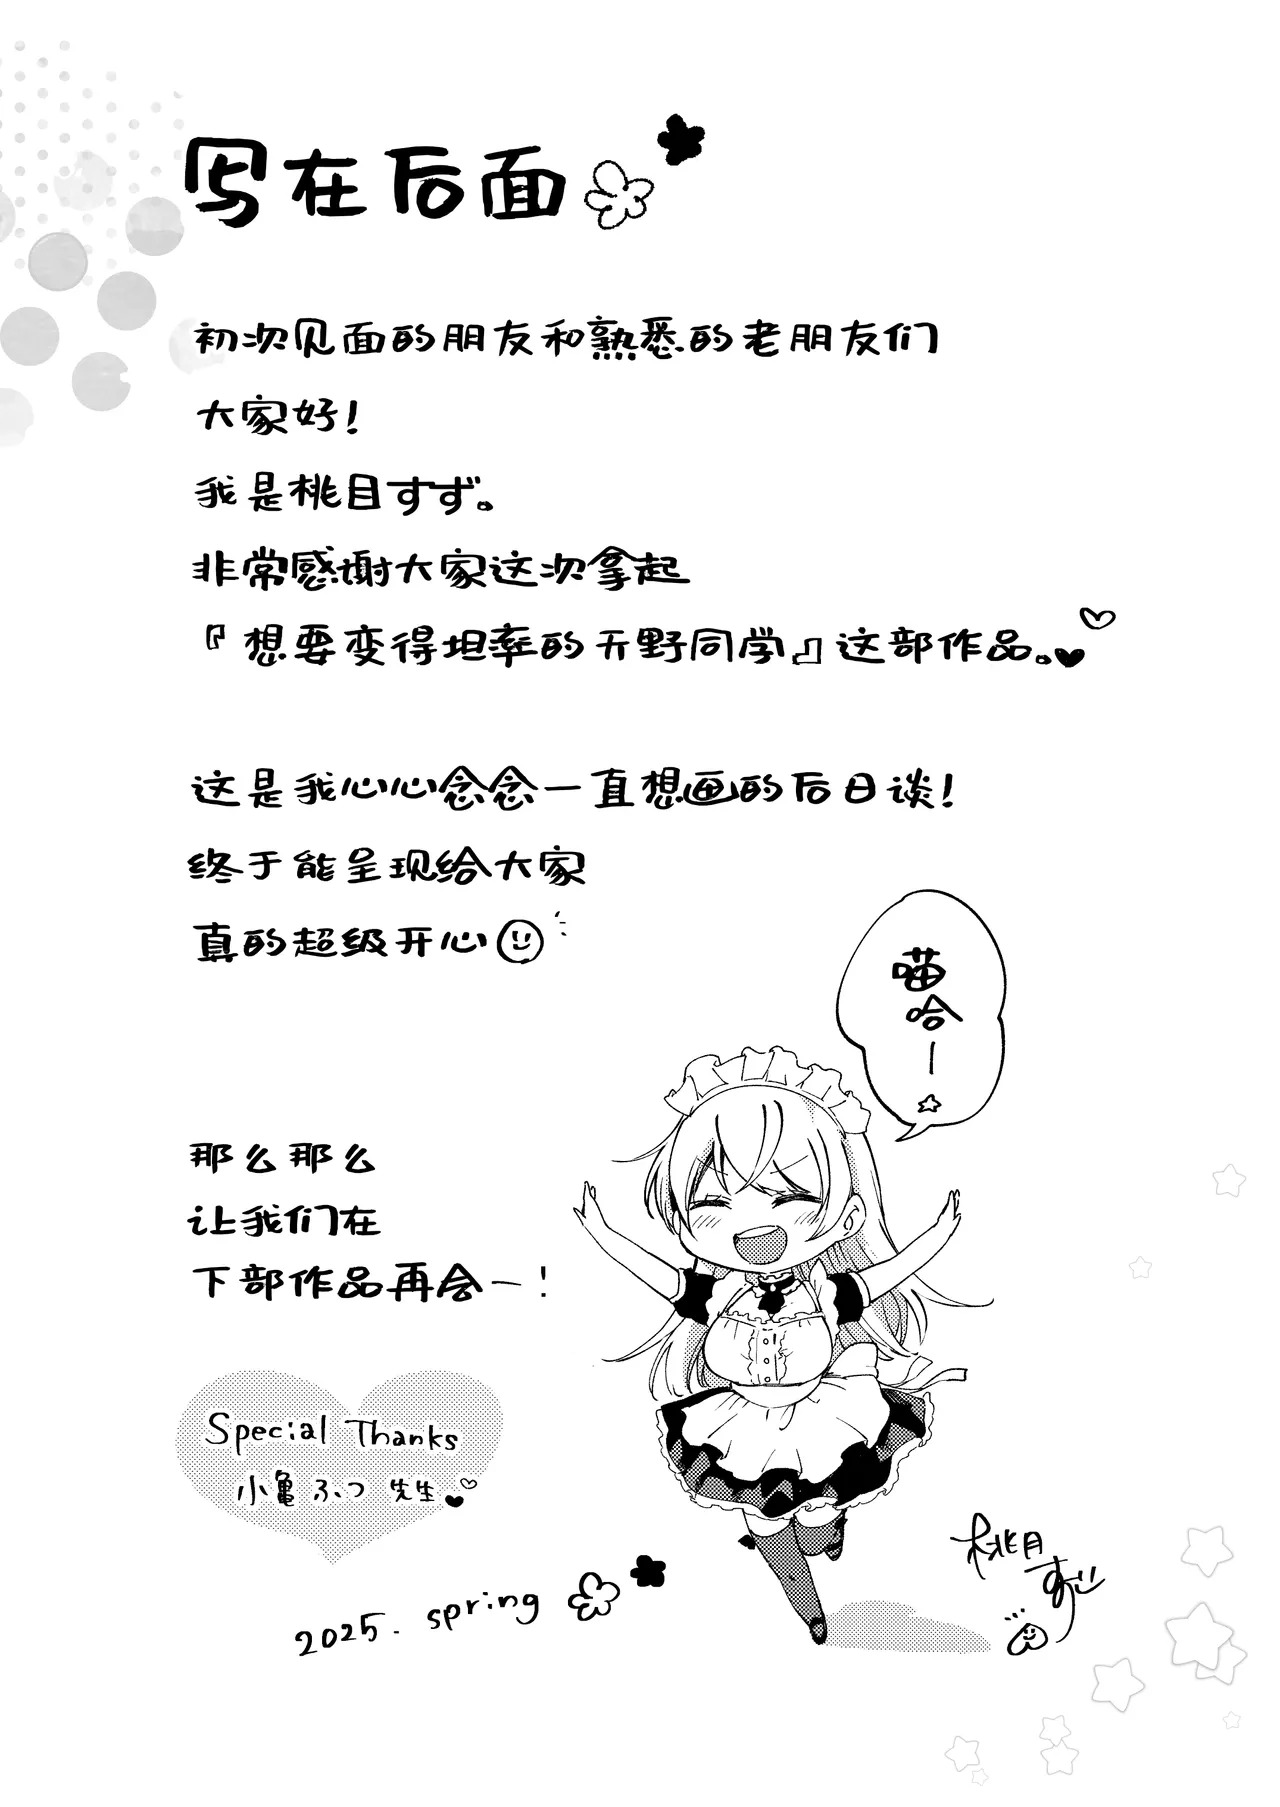 写在后面
初次见面的朋友和熟悉的老朋友们
大家好!
我是桃目すず。
非常感谢大家这次拿起
『想要变得坦率的天野同学』这部作品。
这是我心心念念一直想画的后日谈!
终于能呈现给大家
真的超级开心
喵哈ー
那么那么
让我们在
下部作品再会ー!
Special Thanks
小亀ふつ 先生
2025. spring
桃月すず